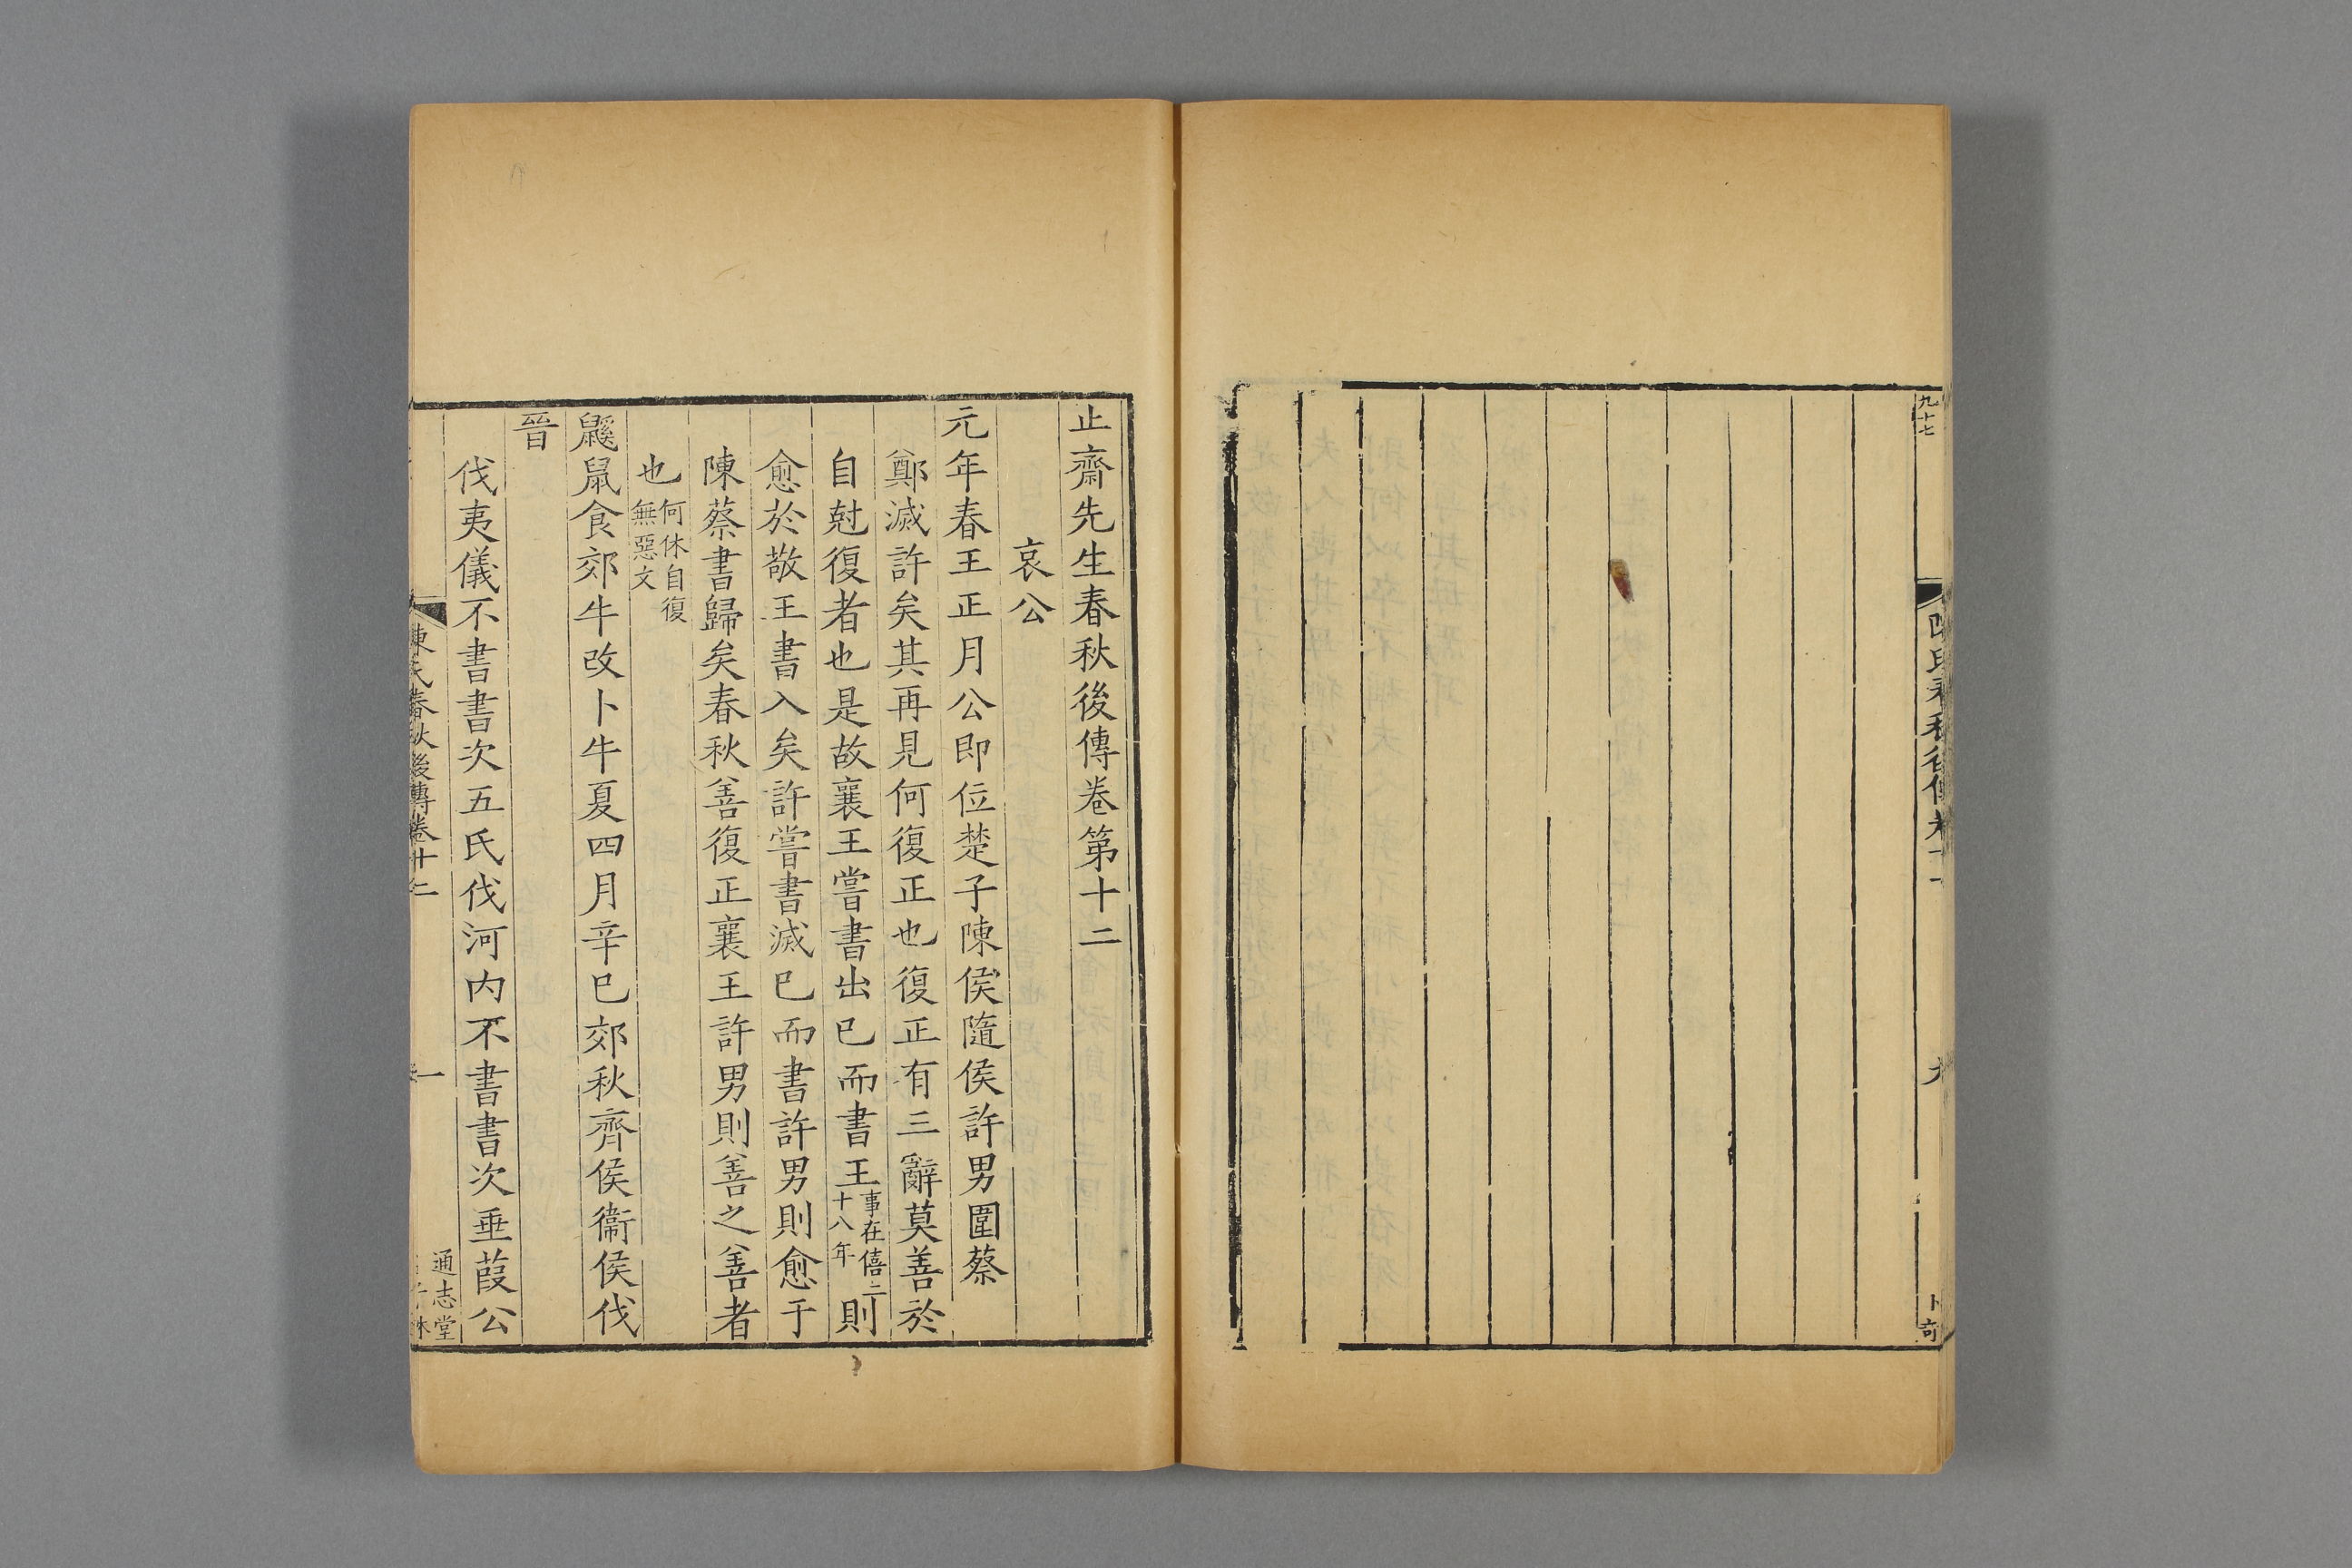 九十七
止齋先生春秋後傳卷第十二
哀公
元年春王正月公即位楚子陳侯隨侯許男圍蔡
鄭滅許矣其再見何復正也復正有三辭莫善於
自尅復者也是故襄王嘗書出已而書王事在僖二十八年則
愈於敬王書入矣許嘗書滅已而書許男則愈于
陳蔡書歸矣春秋善復正襄王許男則善之善者
也何休自復無惡文
鼷鼠食郊牛改卜牛夏四月辛巳郊秋齊侯衞侯伐
晉
伐夷儀不書書次五氏伐河内不書書次垂葭公
陳氏春秋後傳卷十二
一
通志堂